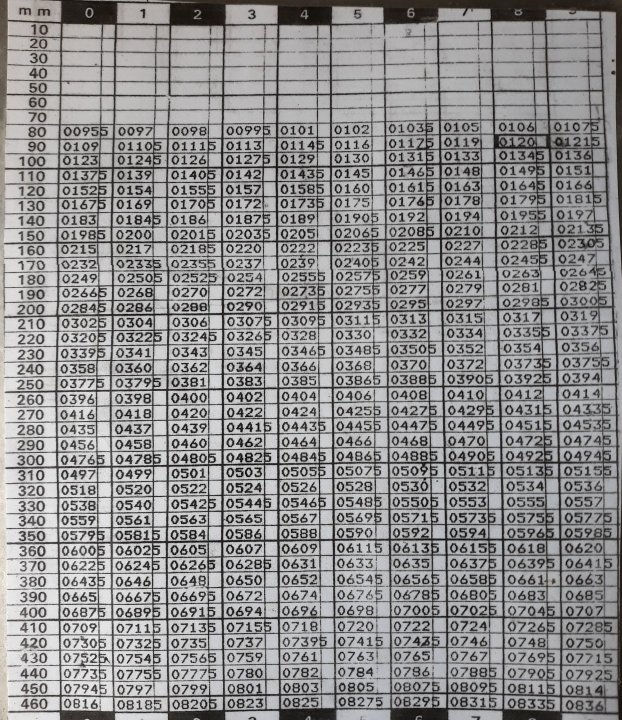 m m 0 1 2 3 4 5 6 7 8 9
10
20
30
40
50
60
70
80 00955 0097 0098 00995 0101 0102 01035 0105 0106 01075
90 0109 01105 01115 0113 01145 0116 01175 0119 0120 01215
100 0123 01245 0126 01275 0129 0130 01315 0133 01345 0136
110 01375 0139 01405 0142 01435 0145 01465 0148 01495 0151
120 01525 0154 01555 0157 01585 0160 01615 0163 01645 0166
130 01675 0169 01705 0172 01735 0175 01765 0178 01795 01815
140 0183 01845 0186 01875 0189 01905 0192 0194 01955 0197
150 01985 0200 02015 02035 0205 02065 02085 0210 0212 02135
160 0215 0217 02185 0220 0222 02235 0225 0227 02285 02305
170 0232 02335 02355 0237 0239 02405 0242 0244 02455 0247
180 0249 02505 02525 0254 02555 02575 0259 0261 0263 02645
190 02665 0268 0270 0272 02735 02755 0277 0279 0281 02825
200 02845 0286 0288 0290 02915 02935 0295 0297 02985 03005
210 03025 0304 0306 03075 03095 03115 0313 0315 0317 0319
220 03205 03225 03245 03265 0328 0330 0332 0334 03355 03375
230 03395 0341 0343 0345 03465 03485 03505 0352 0354 0356
240 0358 0360 0362 0364 0366 0368 0370 0372 03735 03755
250 03775 03795 0381 0383 0385 03865 03885 03905 03925 0394
260 0396 0398 0400 0402 0404 0406 0408 0410 0412 0414
270 0416 0418 0420 0422 0424 04255 04275 04295 04315 04335
280 0435 0437 0439 04415 04435 04455 04475 04495 04515 04535
290 0456 0458 0460 0462 0464 0466 0468 0470 04725 04745
300 04765 04785 04805 04825 04845 04865 04885 04905 04925 04945
310 0497 0499 0501 0503 05055 05075 05095 05115 05135 05155
320 0518 0520 0522 0524 0526 0528 0530 0532 0534 0536
330 0538 0540 05425 05445 05465 05485 05505 0553 0555 0557
340 0559 0561 0563 0565 0567 05695 05715 05735 05755 05775
350 05795 05815 0584 0586 0588 0590 0592 0594 05965 05985
360 06005 06025 0605 0607 0609 06115 06135 06155 0618 0620
370 06225 06245 06265 06285 0631 0633 0635 06375 06395 06415
380 06435 0646 0648 0650 0652 06545 06565 06585 0661 0663
390 0665 06675 06695 0672 0674 06765 06785 06805 0683 0685
400 06875 06895 06915 0694 0696 0698 07005 07025 07045 0707
410 0709 07115 07135 07155 0718 0720 0722 0724 07265 07285
420 07305 07325 0735 0737 07395 07415 07435 0746 0748 0750
430 07525 07545 07565 0759 0761 0763 0765 0767 07695 07715
440 07735 07755 07775 0780 0782 0784 0786 07885 07905 07925
450 07945 0797 0799 0801 0803 0805 08075 08095 08115 0814
460 0816 08185 08205 0823 0825 08275 08295 08315 08335 0836